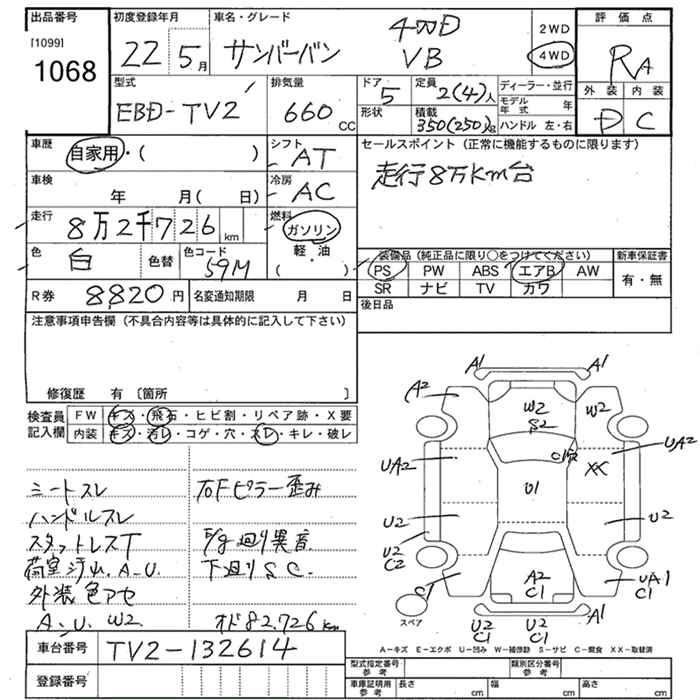 出品番号
[1099]
1068
初度登録年月
22年5月
車名・グレード
サンバーバン
4WD
VB
2WD
4WD
評価点
RA
型式
EBD-TV2
排気量
660 CC
ドア
5
形状
定員
2(4)人
積載
350(250)kg
ディーラー・並行
モデル年式 年
ハンドル 左・右
外装 内装
D C
車歴
自家用・( )
シフト
AT
セールスポイント(正常に機能するものに限ります)
走行8万Km台
車検
年 月( 日)
冷房
AC
走行
8万2千726km
燃料
ガソリン
軽・油
( )
色
白
色替
色コード
59M
装備品(純正品に限り○をつけてください)
PS PW ABS エアB AW
SR ナビ TV カワ
新車保証書
有・無
R券
8820円
名変通知期限 月 日
後日品
注意事項申告欄(不具合内容等は具体的に記入して下さい)
修復歴 有〔箇所 〕
検査員記入欄
FW キズ・飛石・ヒビ割・リペア跡・X要
内装 キズ・汚レ・コゲ・穴・スレ・キレ・破レ
シートスレ
ハンドルスレ
スタットレスT
荷室汚レ.A.U.
外装色アセ
A.U.W2
右Fピラー歪み
E/g廻り異音
下廻りS.C.
オド82,726km
A1
A1
A2
W2
S2
W2
UA2
UA2
XX
U1
U2
U2
U2
C2
C1
UA1
C1
A2
C1
A1
スペア
U2
C1
U2
C1
A-キズ E-エクボ U-凹み W-補修跡 S-サビ C-腐食 XX-取替済
車台番号
TV2-132614
登録番号
型式指定番号
参考
類別区分番号
参考
車庫証明用
参考
長さ cm
幅 cm
高さ cm